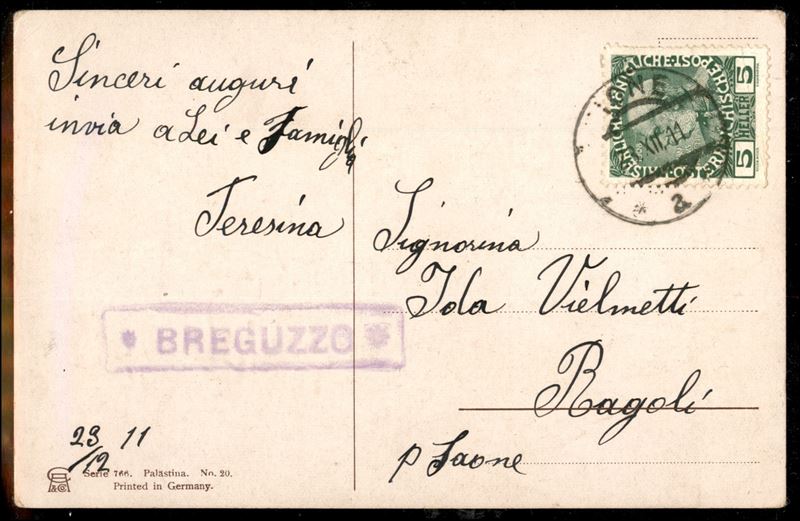 Sinceri auguri
invia a Lei e Famiglia
Teresina
Signorina
Ida Vielmetti
Ragoli
p Saone
* BREGUZZO *
23 11
/12
Serie 766. Palästina. No. 20.
Printed in Germany.
5 HELLER 5
XII.11
* a